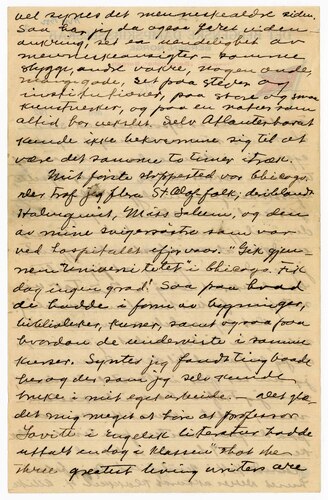 vel synes det menneskealdre siden.
Saa har jeg da ogsaa faret viden
omkring, set en uendelighet av
menneskeansigter — somme
stygge, andre vakre, nogen onde,
nogen gode. Set paa steder og
institutioner, paa store og smaa
kunstverker, og paa en natur som
altid var vekslet. Selv Atlanterhavet
kunde ikke bekvemme sig til at
være det samme to timer itræk.
Mit første stoppested var Chicago.
Der traf jeg flere St. Olaf folk, deriblandt
Holmquist, Miss Saleem, og den
av mine svigersøstre som var
ved hospitalet ifjor vaar. "Gik gjen-
nem Universitetet" i Chicago. Fik
dog ingen grad! Saa paa hvad
de hadde i form av bygninger,
biblioteker, kurser, samt ogsaa paa
hvordan de underviste i somme
kurser. Syntes jeg fandt ting baade
her og der som jeg selv kunde
bruke i mit eget arbeide. glæ-
det mig meget at høre at professor
Lovitt i Engelsk literatur hadde
uttalt en dag i klassen "that the
three greatest living writers are